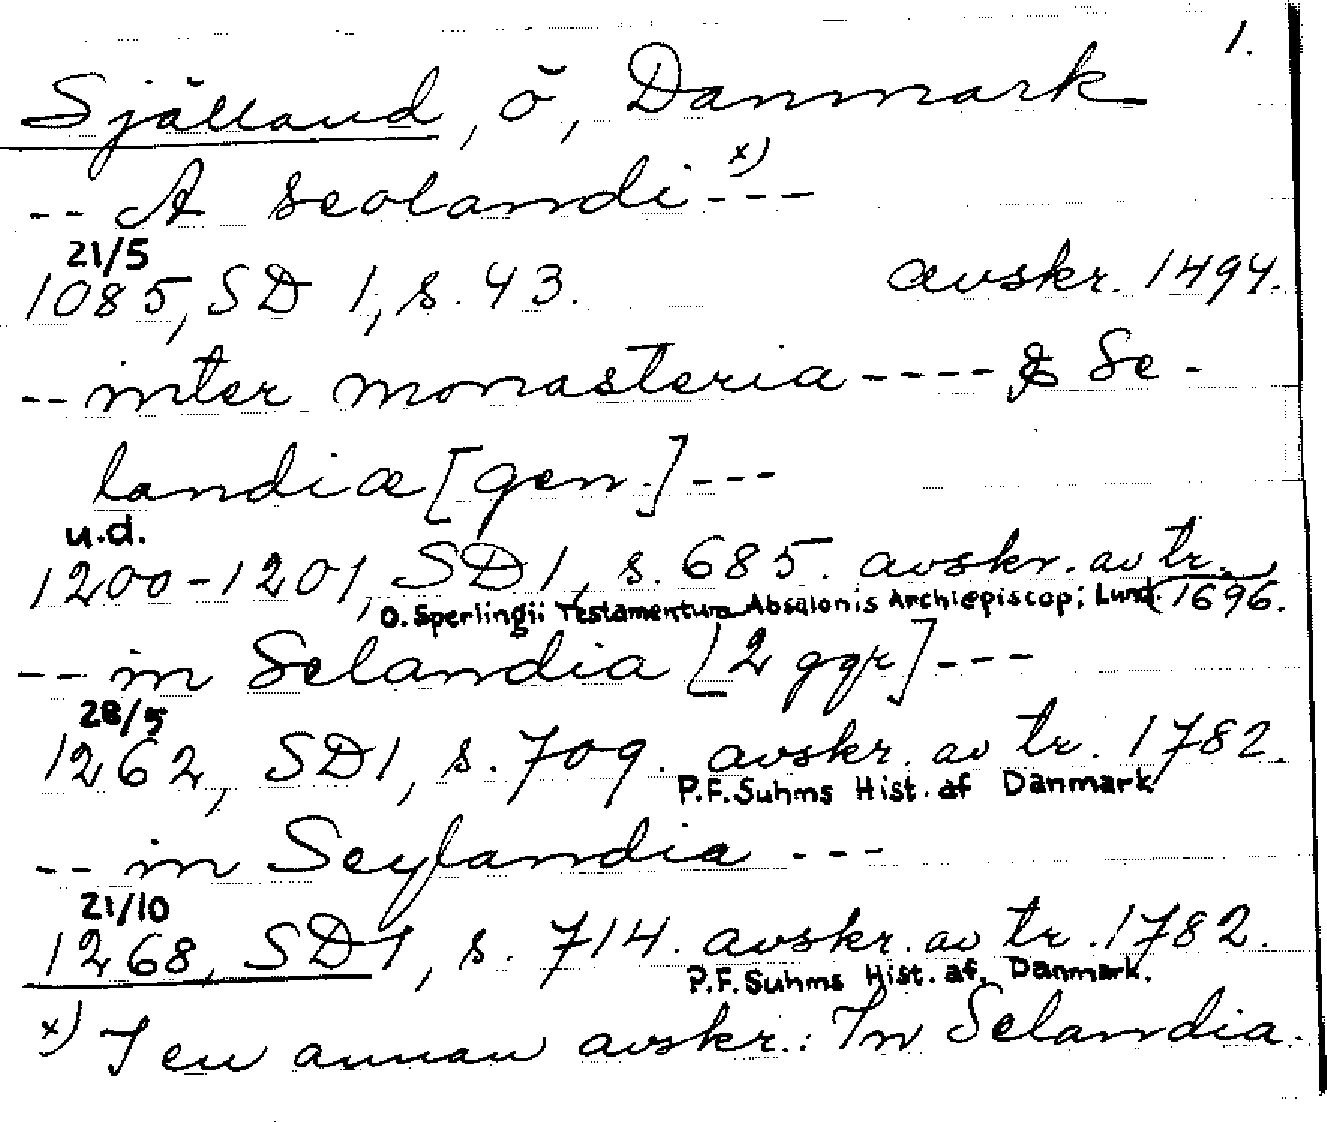 1.
Själland, ö, Danmark
-- A seolandi x) ---
21/5
1085, SD 1, s. 43. avskr. 1494.
-- inter monasteria ---- & Se-
landiæ [gen.] ---
u.d.
1200-1201, SD 1, s. 685. avskr. av tr.
O. Sperlingii Testamentum Absalonis Archiepiscopi Lund. 1696.
-- in Selandia [2 ggr] ---
28/5
1262, SD 1, s. 709. avskr. av tr. 1782.
P.F. Suhms Hist. af Danmark
-- in Seylandia ---
21/10
1268, SD 1, s. 714. avskr. av tr. 1782.
P.F. Suhms Hist. af. Danmark.
x) I en annan avskr.: In Selandia.